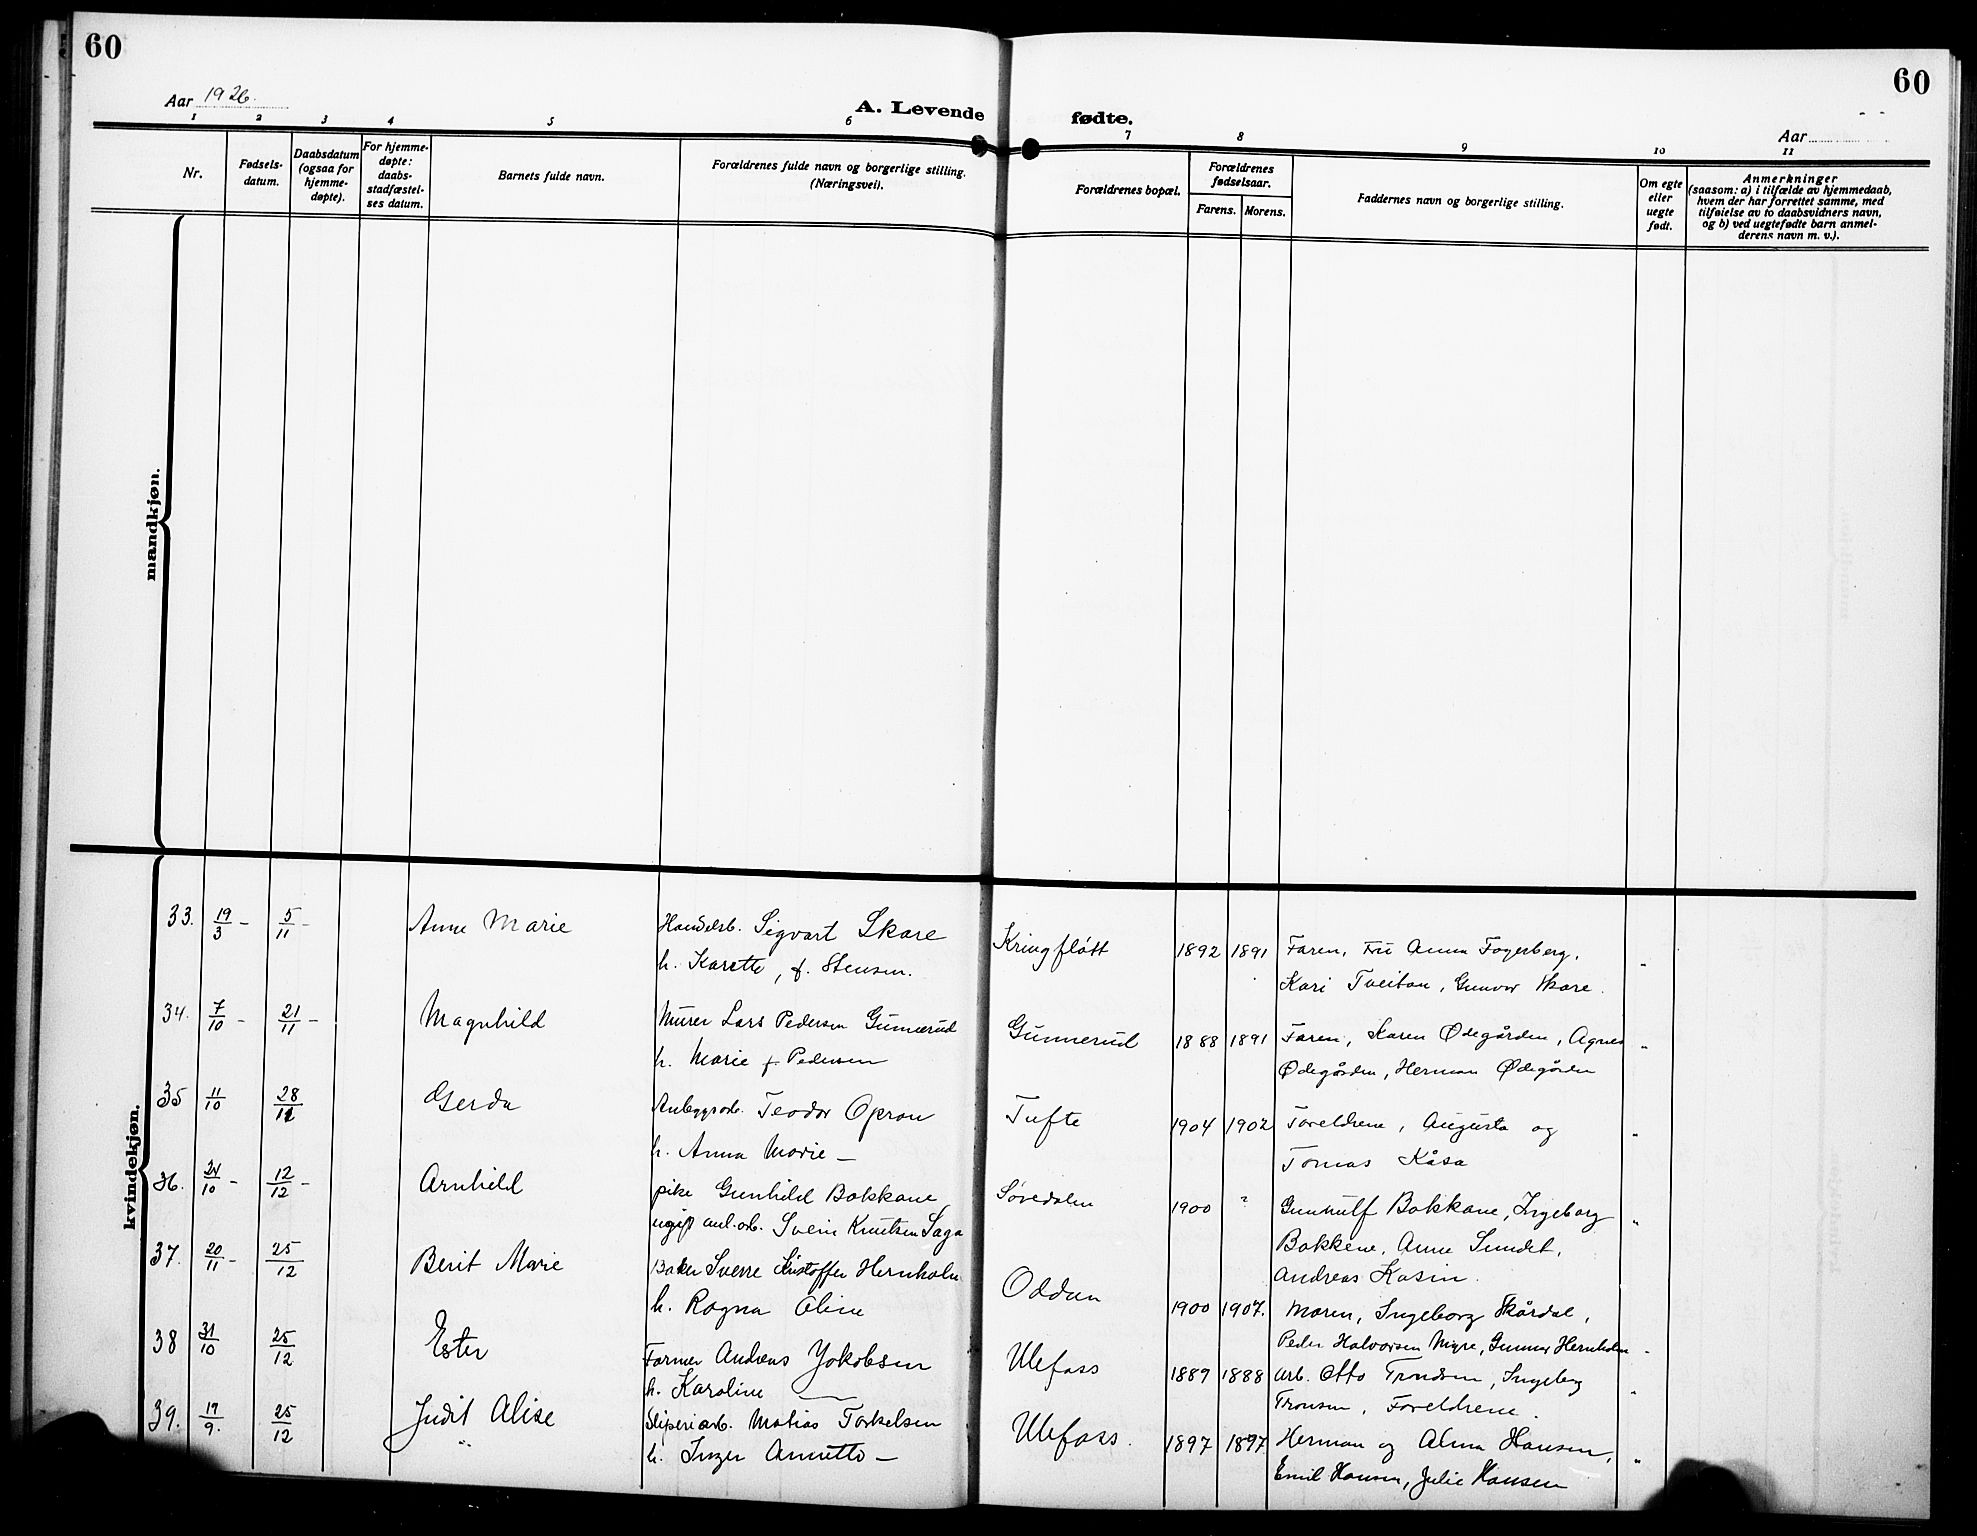 60
60
Aar 1926.
A. Levende fødte.
Aar
1 2 3 4 5 6 7 8 9 10 11
Nr.
Fødsels-
datum.
Daabsdatum
(ogsaa for
hjemme-
døpte).
For hjemme-
døpte:
daabs-
stadfæstel-
ses datum.
Barnets fulde navn.
Forældrenes fulde navn og borgerlige stilling.
(Næringsvei).
Forældrenes bopæl.
Forældrenes
fødselsaar.
Farens. Morens.
Faddernes navn og borgerlige stilling.
Om egte
eller
uegte
født.
Anmerkninger
(saasom: a) i tilfælde av hjemmedaab,
hvem der har forrettet samme, med
tilføielse av to daabsvidners navn,
og b) ved uegtefødte barn anmel-
derens navn m. v.).
mandkjøn.
kvindekjøn.
33. 19/3 - 5/11 - Anne Marie Handelsb. Sigvart Skare Kringflått 1892 1891 Faren, Fru Anna Fagerberg, "
h. Karette, f. Stensen. Kari Tveitan, Gunvor Skare.
34. 7/10 - 21/11 - Magnhild Murer Lars Pedersen Gunnerud Gunnerud 1888 1891 Faren, Karen Ødegården, Agnes "
h. Marie f. Pedersen Ødegården, Herman Ødegården
35 11/10 28/11 Gerda Anleggsarb. Teodor Opran Tufte 1904 1902 Foreldrene, Augusta og "
h. Anna Marie — Tomas Kåsa
36. 24/10 - 12/12 - Arnhild pike Gunhild Bakkane Sørdalen 1900 ? Gunnulf Bakkane, Ingeborg "
ugift anl. arb. Svein Knutsen Saga Bakkene, Anne Sundet,
Andreas Kasin.
37. 20/11 - 25/12 Berit Marie Baker Sverre Kristoffer Hernholm Oddan 1900 1907. Moren, Ingeborg Skårdal,
h. Ragna Aline Peder Halvorsen Myre, Gunnar Hernholm "
38 31/10 25/12 Ester Former Andreas Jakobsen Ulefoss 1889 1888 Arb. Otto Trondsen, Ingeborg "
h. Karoline — Tronsen, Foreldrene.
39. 19/9. 25/12 Judit Alise Sliperiarb. Matias Torkelsen Ulefoss. 1897 1897 Herman og Alma Hansen, "
h. Inger Annette — Emil Hansen, Julie Hansen